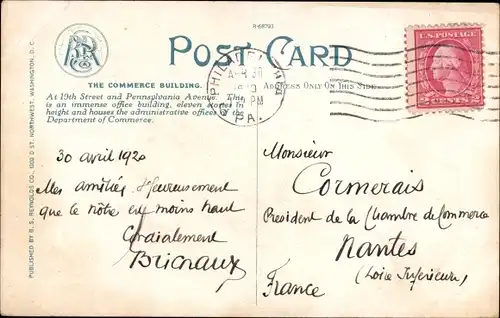 R-68793
POST CARD
THE COMMERCE BUILDING.
At 19th Street and Pennsylvania Avenue. This
is an immense office building, eleven stories in
height and houses the administrative offices of the
Department of Commerce.
ADDRESS ONLY ON THIS SIDE
PUBLISHED BY B. S. REYNOLDS CO., 1502 D ST. NORTHWEST, WASHINGTON, D. C.
BSR
PHILADELPHIA
APR 30
PM
PA.
U.S. POSTAGE
2 CENTS 2
30 avril 1920
Mes amitiés. Heureusement
que le nôtre est moins haut
Cordialement
Bricnaux
Monsieur
Cormerais
Président de la Chambre de Commerce
Nantes
(Loire Inférieure)
France